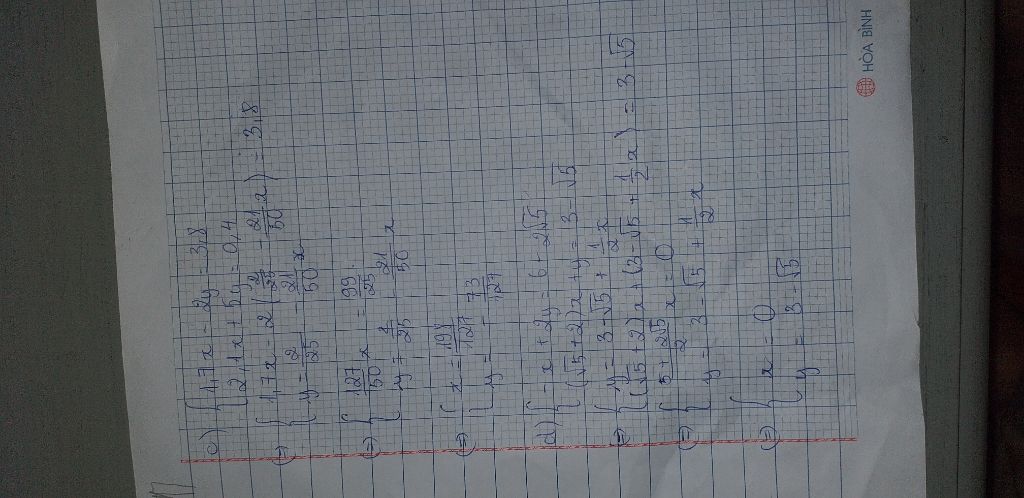 c) { 1,7x - 2y = 3,8
{ 2,1x + 5y = 0,4
(=) { 1,7x - 2(2/25 - 21/50 x) = 3,8
{ y = 2/25 - 21/50 x
(=) { 127/50 x = 99/25
{ y = /25 - 21/50 x
(=) { x = 198/127
{ y = - 73/127
d) { -x + 2y = 6 - 2√5
{ (√5 + 2)x + y = 3 - √5
(=) { y = 3 - √5 + 1/2 x
{ (√5 + 2)x + (3 - √5 + 1/2 x) = 3 √5
(=) { 5 + 2√5/2 x = 0
{ y = 3 - √5 + 1/2 x
(=) { x = 0
{ y = 3 - √5
HÒA BÌNH